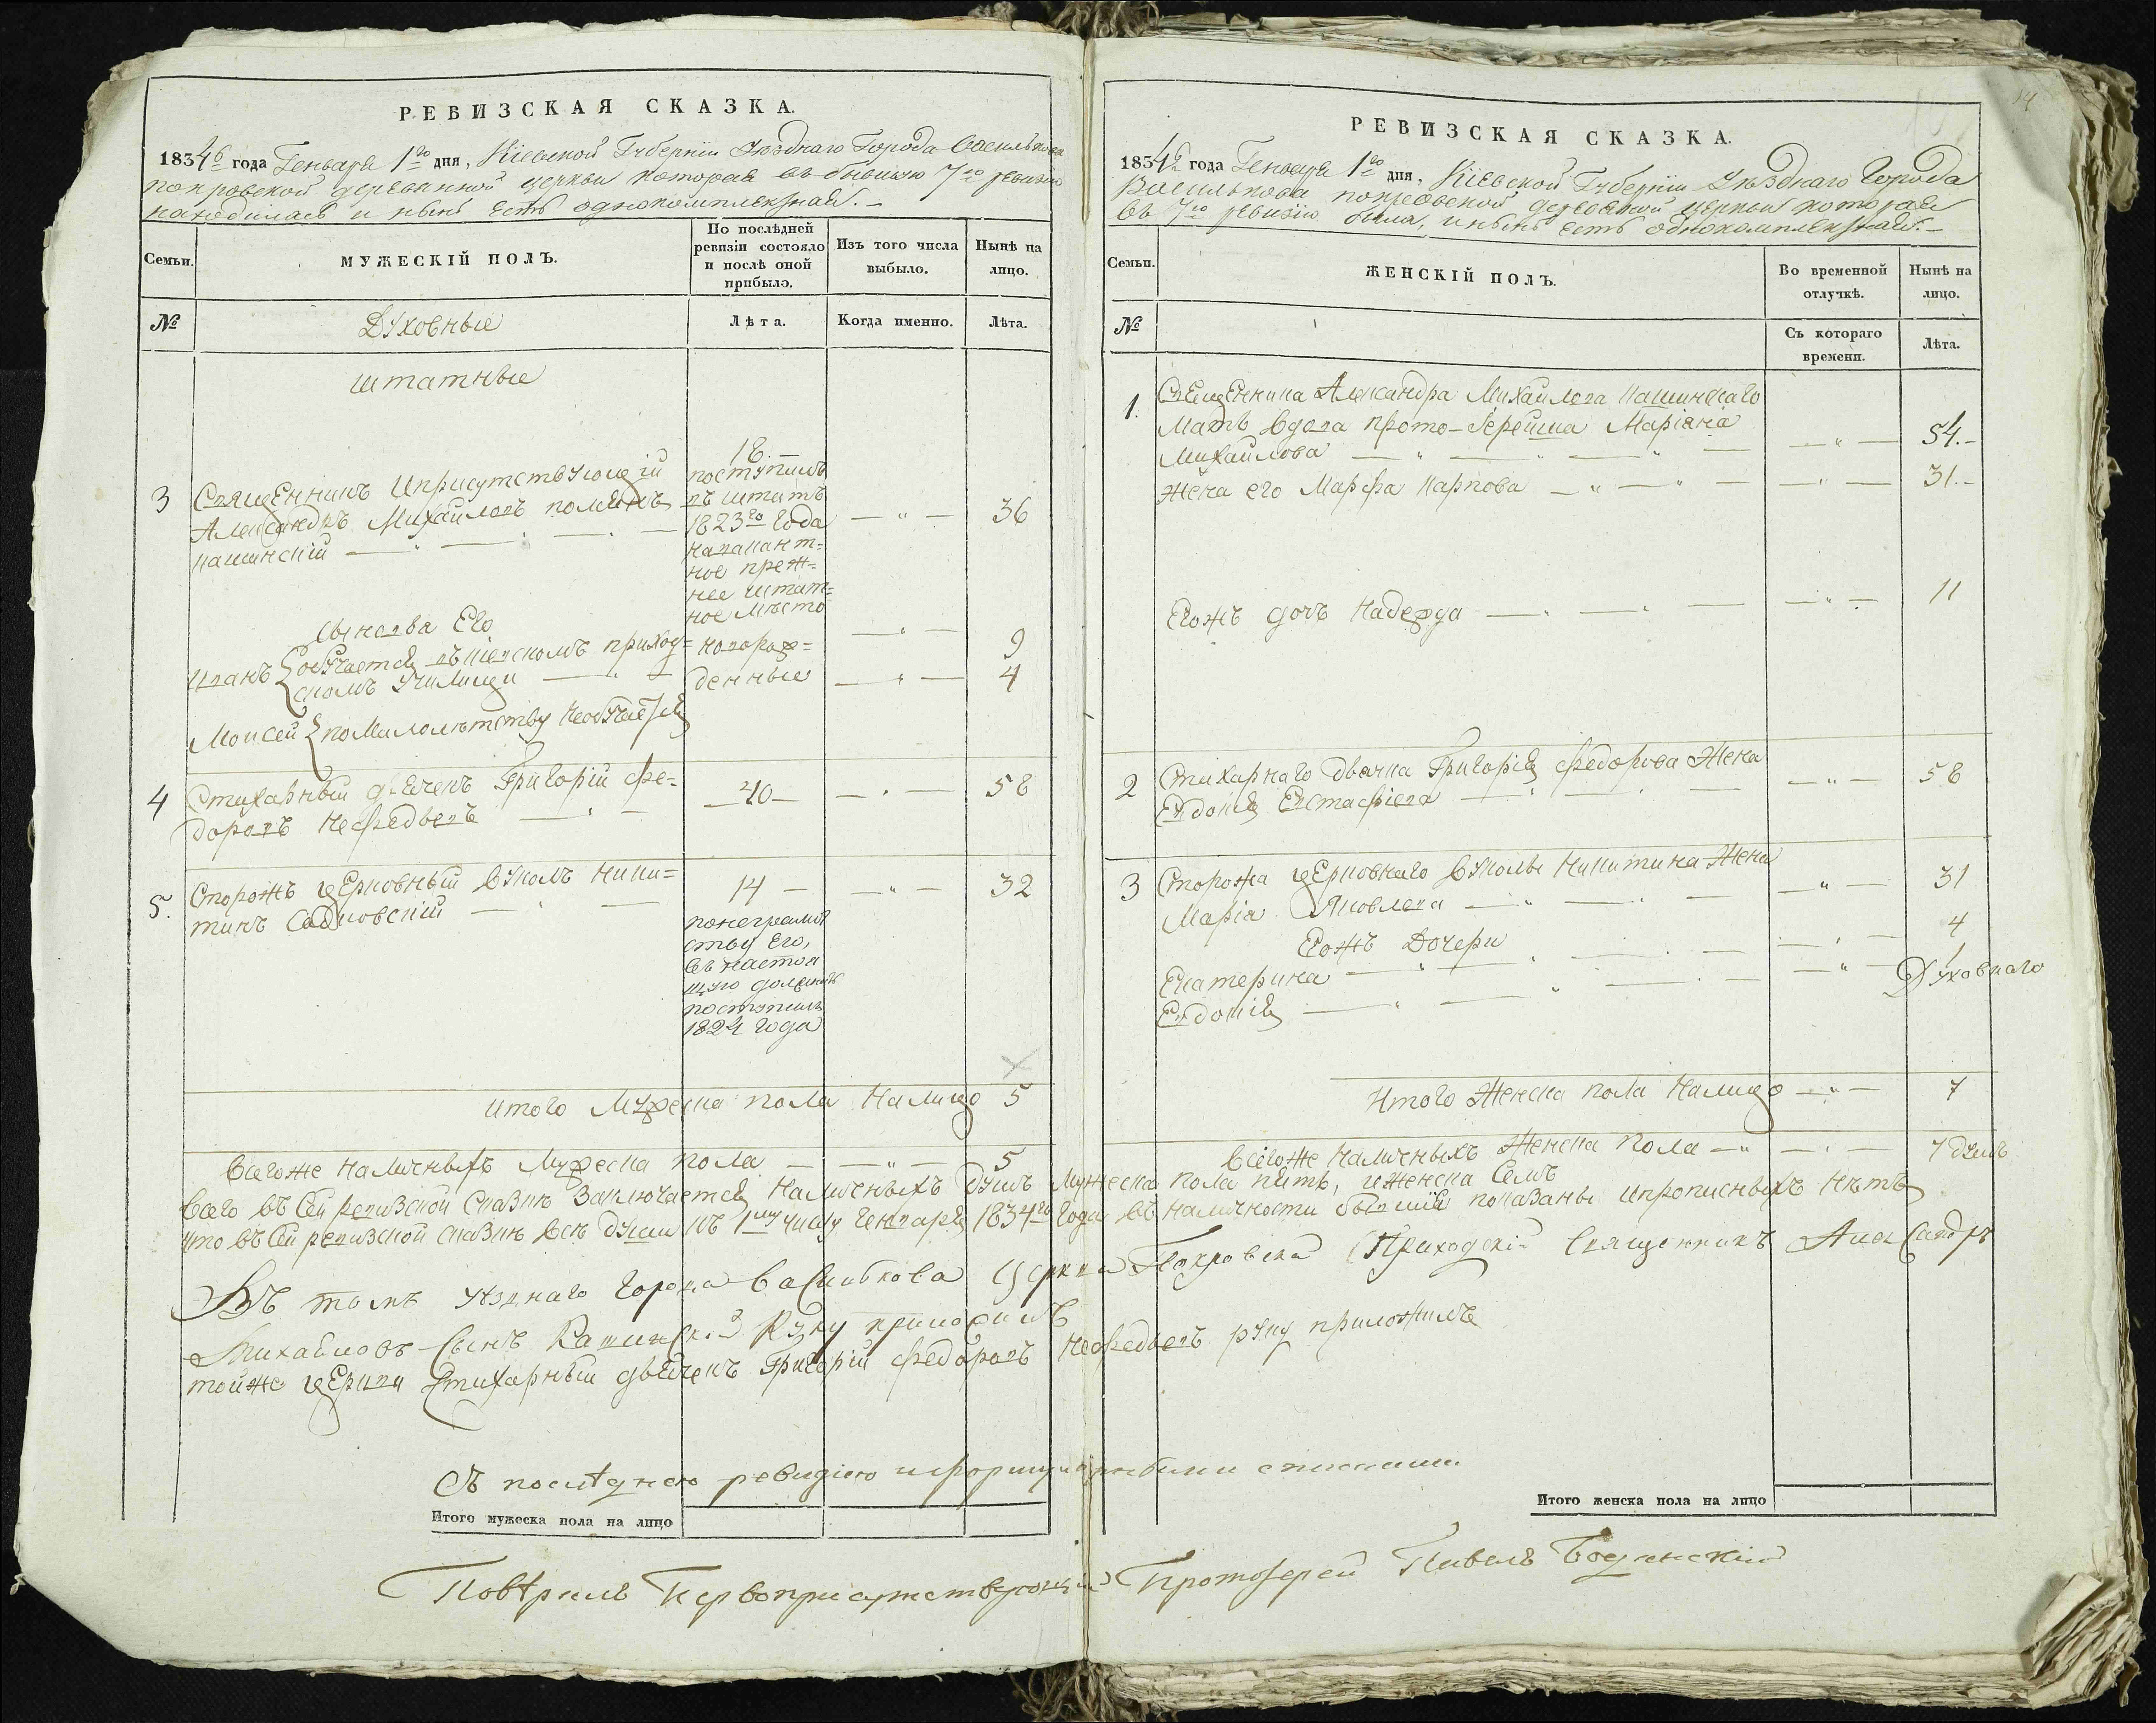 РЕВИЗСКАЯ СКАЗКА.
1834го года Генваря 1го дня, Кіевской Губерніи Уѣзднаго Города Василькова
покровской деревянной церкви которая въ бывшую 7ю ревизію
находилась и нынѣ есть однокомплектная. –
Семьи.
МУЖЕСКІЙ ПОЛЪ.
По послѣдней ревизіи состояло и послѣ оной прибыло.
Изъ того числа выбыло.
Нынѣ на лицо.
№
Духовные
Лѣта.
Когда именно.
Лѣта.
штатные
3
Священникъ Иприсутствующій
Александръ Михайловъ
кашинскій
18. –
поступилъ
въ штатъ
1823го года
на вакант=
ное преж=
нее штат=
ное мѣсто
36
сыновья Его
Иванъ обучается въ кіевскомъ приход=
скомъ училищи
новорож=
9
Моисей по малолѣтству необучается
денные
4
4
Стихарный дьячекъ Григорій Фе=
доровъ Нефедьевъ
40
58
5.
Сторожъ церковный вуколъ Ники=
тинъ Садковскій
14 –
32
понеграмот
ству Его,
въ настоя
щую должность
поступилъ
1824 года
итого Мужеска пола Налицо 5
Всегоже Наличныхъ Мужеска пола 5
РЕВИЗСКАЯ СКАЗКА.
1834го года Генваря 1го дня, Кіевской Губерніи Уѣзднаго Города
Василькова покровской деревянной церкви которая
въ 7ю ревизію была, инынѣ есть однокомплектная. –
Семьи.
ЖЕНСКІЙ ПОЛЪ.
Во временной отлучкѣ.
Нынѣ на лицо.
№
Съ котораго времени.
Лѣта.
1.
Священника Александра Михайлова Кашинскаго
Мать вдова прото-Іерейша Маріана
Михайлова
54. –
Жена его Марфа Карпова
31. –
Егожъ дочь Надежда
11
2
Стихарнаго дьячка Григорія Федорова Жена
Евдокія Евстафіева
58
3
Сторожа церковнаго вуколы Никитина Жена
Марія Яковлева
31
Егожъ Дочери
Екатерина
4
Евдокія
1
Духовнаго
Итого Женска пола Налицо 7
Всегоже Наличныхъ Женска пола 7 душъ
Всего въ сей ревизской сказкѣ заключается Наличныхъ душъ Мужеска пола пять, иженска семь
что въ сей ревизской сказкѣ всѣ души къ 1му числу Генваря 1834го года въ наличности бывшіе показаны ипрописныхъ нѣтъ
Въ томъ уѣзнаго города Василькова Церкви Покровской Приходскій Священникъ Александръ
Михайловъ Сынъ Кашинскій Руку приложилъ
тойже церкви Стихарный дьячекъ Григорій Федоровъ Нефедьевъ руку приложилъ
Съ послѣднею ревизіею
Итого мужеска пола на лицо
Итого женска пола на лицо
Повѣрялъ Первоприсутствующій Протоіерей Павелъ